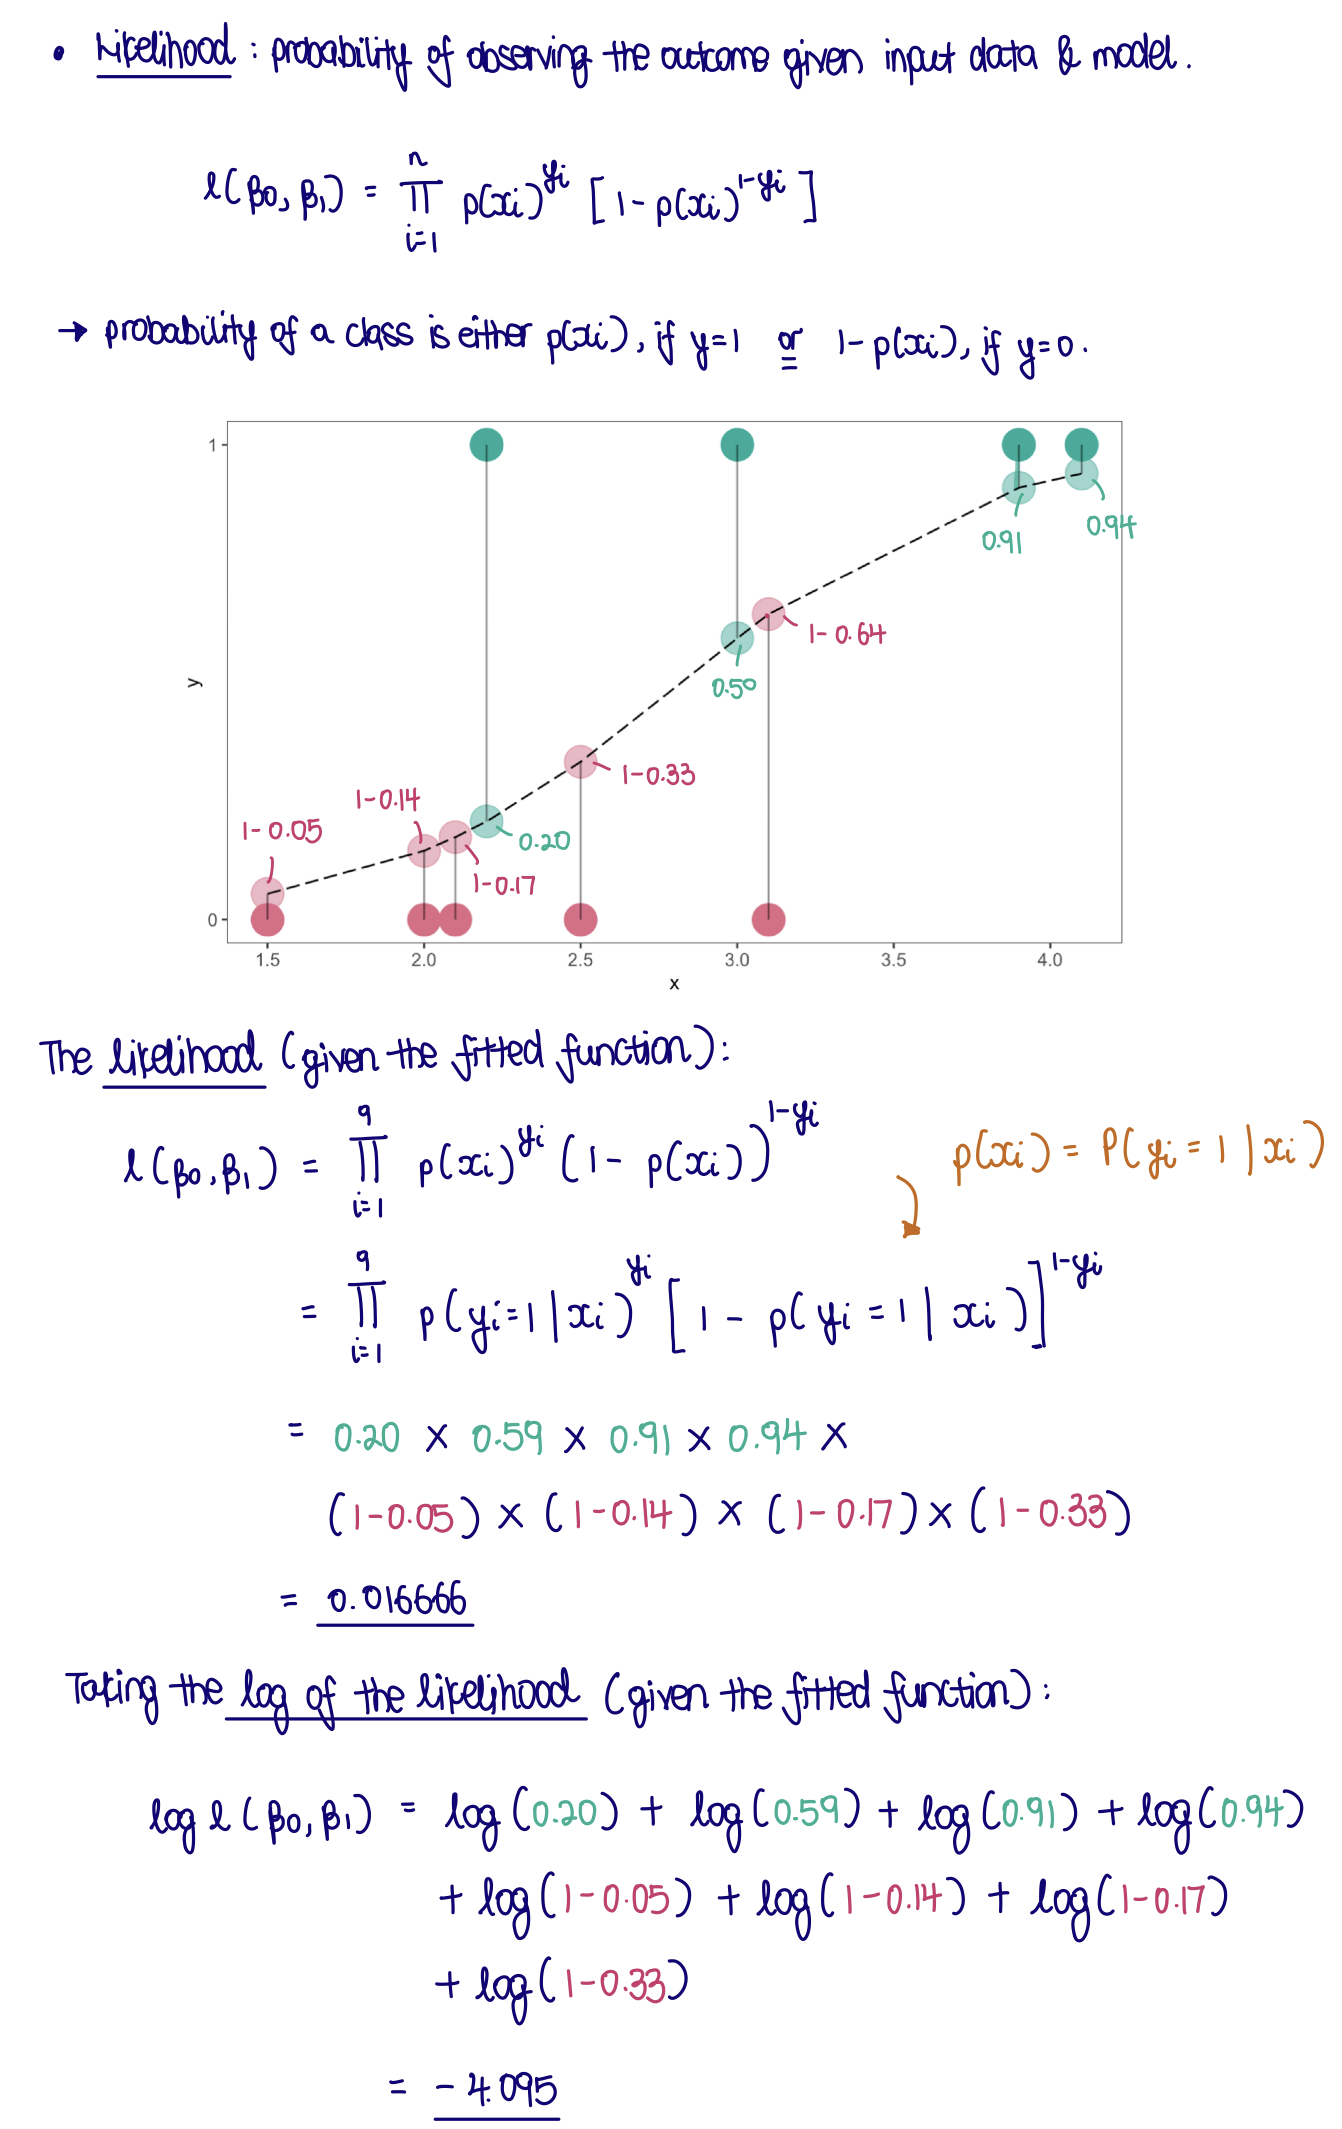 • Likelihood : probability of observing the outcome given input data & model.
l(β0, β1) = ∏ⁿᵢ₌₁ p(xi)^yi [1-p(xi)^1-yi]
→ probability of a class is either p(xi), if y=1 or 1-p(xi), if y=0.
1
0.94
0.91
1-0.64
y
0.50
1-0.33
1-0.14
1-0.05
0.20
1-0.17
0
1.5 2.0 2.5 3.0 3.5 4.0
x
The likelihood (given the fitted function):
l(β0, β1) = ∏⁹ᵢ₌₁ p(xi)^yi (1- p(xi))^1-yi
p(xi) = P(yi = 1 | xi)
= ∏⁹ᵢ₌₁ p(yi=1 | xi)^yi [1 - p(yi = 1 | xi)]^1-yi
= 0.20 × 0.59 × 0.91 × 0.94 ×
(1-0.05) × (1-0.14) × (1-0.17) × (1-0.33)
= 0.016666
Taking the log of the likelihood (given the fitted function):
log l(β0, β1) = log(0.20) + log(0.59) + log(0.91) + log(0.94)
+ log(1-0.05) + log(1-0.14) + log(1-0.17)
+ log(1-0.33)
= -4.095